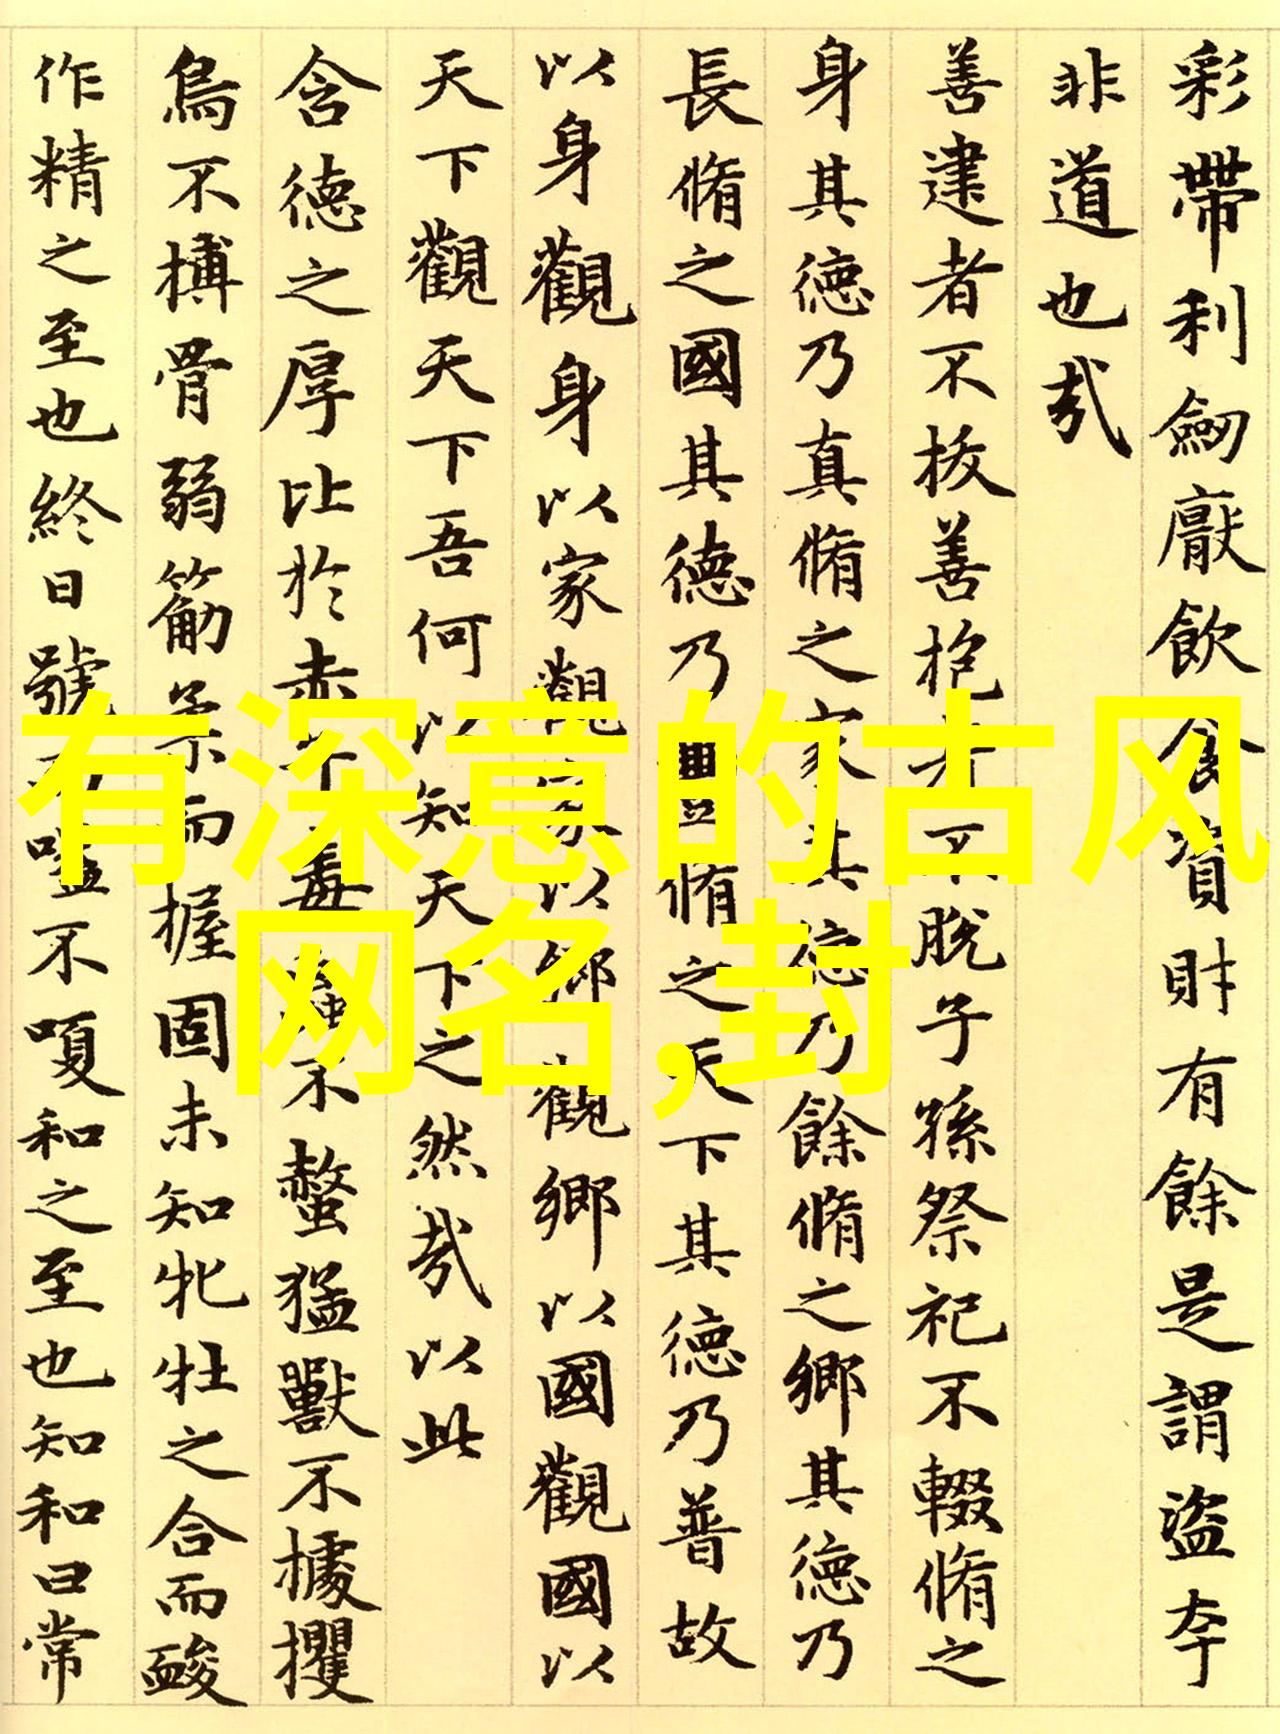 彩帶利劒厭飲食資財有餘是謂盜夸
非道也哉
善建者不拔善抱者不脫子孫祭祀不輟脩之
身其德乃真脩之家其德乃餘脩之鄉其德乃
長脩之國其德乃豐脩之天下其德乃普故
以身觀身以家觀家以鄉觀鄉以國觀國以
天下觀天下吾何以知天下之然哉以此
含德之厚比於赤子毒蟲不螫猛獸不據攫
鳥不搏骨弱筋柔而握固未知牝牡之合而
作精之至也終日號而嗌不嗄和之至也知和曰常
有深意的古风
网名,封